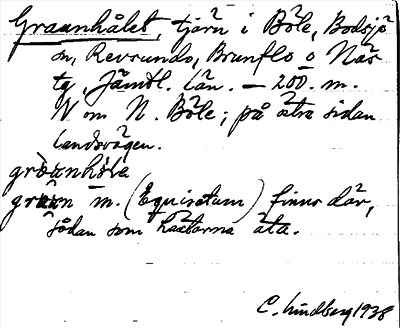 Graanhålet, tjärn i Böle, Bodsjö
sn, Revsunds, Brunflo o Näs
tg, Jämtl. län. — 200 m.
N om N. Böle; på östra sidan
landsvägen.
m. (Equisetum) finns där,
sådan som hästarna äta.
C. Lindberg 1938